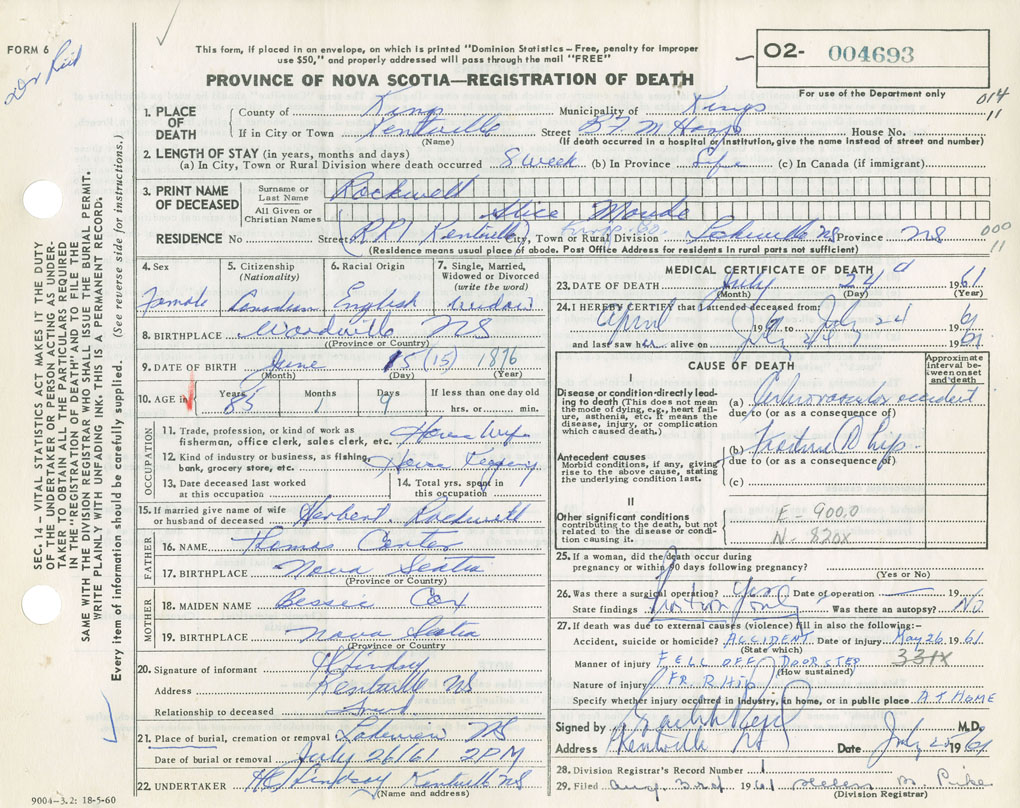 FORM 6
This form, if placed in an envelope, on which is printed "Dominion Statistics – Free, penalty for improper
use $50," and properly addressed will pass through the mail "FREE"
PROVINCE OF NOVA SCOTIA—REGISTRATION OF DEATH
O2- 004693
For use of the Department only
014
11
1. PLACE OF DEATH
County of Kings Municipality of Kings
If in City or Town Kentville Street B F M Hosp House No.
(Name) (If death occurred in a hospital or institution, give the name instead of street and number)
2. LENGTH OF STAY (in years, months and days)
(a) In City, Town or Rural Division where death occurred 8 week (b) In Province Life (c) In Canada (if immigrant)
3. PRINT NAME OF DECEASED
Surname or Last Name Rockwell
All Given or Christian Names Alice Maude
RESIDENCE No Street RR1 Kentville City, Town or Rural Division NS Province NS
(Residence means usual place of abode. Post Office Address for residents in rural parts not sufficient)
000
11
4. Sex Female
5. Citizenship (Nationality) Canadian
6. Racial Origin English
7. Single, Married, Widowed or Divorced (write the word) widow
8. BIRTHPLACE Woodville NS
(Province or Country)
9. DATE OF BIRTH June 15 (15) 1876
(Month) (Day) (Year)
10. AGE in Years 85 Months 1 Days 9 If less than one day old hrs. or min.
OCCUPATION
11. Trade, profession, or kind of work as fisherman, office clerk, sales clerk, etc. House Wife
12. Kind of industry or business, as fishing, bank, grocery store, etc. House Keeping
13. Date deceased last worked at this occupation
14. Total yrs. spent in this occupation
15. If married give name of wife or husband of deceased Herbert Rockwell
FATHER
16. NAME Thomas
17. BIRTHPLACE Nova Scotia
(Province or Country)
MOTHER
18. MAIDEN NAME Bessie Cox
19. BIRTHPLACE Nova Scotia
(Province or Country)
20. Signature of informant H Lindsay
Address Kentville NS
Relationship to deceased
21. Place of burial, cremation or removal Lakeview NS
Date of burial or removal July 26/61 2PM
22. UNDERTAKER Lindsay Kentville NS
(Name and address)
9004—3.2: 18-5-60
MEDICAL CERTIFICATE OF DEATH
23. DATE OF DEATH July 24 1961
(Month) (Day) (Year)
24. I HEREBY CERTIFY that I attended deceased from:
April 1961 to July 24 1961
and last saw her alive on July 24 1961
CAUSE OF DEATH
Approximate interval between onset and death
I
Disease or condition directly leading to death (This does not mean the mode of dying, e.g., heart failure, asthenia, etc. It means the disease, injury, or complication which caused death.)
(a) Cerebrovascular accident
due to (or as a consequence of)
Antecedent causes
Morbid conditions, if any, giving rise to the above cause, stating the underlying condition last.
(b) Fracture R hip
due to (or as a consequence of)
(c)
II
Other significant conditions contributing to the death, but not related to the disease or condition causing it.
E - 900.0
N - 820X
25. If a woman, did the death occur during pregnancy or within 90 days following pregnancy?
(Yes or No)
26. Was there a surgical operation? Date of operation 19
State findings Was there an autopsy? No
27. If death was due to external causes (violence) fill in also the following:—
Accident, suicide or homicide? ACCIDENT Date of injury May 26 1961
(State which)
Manner of injury FELL OFF DOORSTEP 331X
(How sustained)
Nature of injury FR. R. HIP
Specify whether injury occurred in industry, in home, or in public place AT HOME
Signed by M.D.
Address Kentville NS Date July 25 1961
28. Division Registrar's Record Number
29. Filed Aug. 3rd 1961 Helen B. Pike
(Division Registrar)
SEC. 14 – VITAL STATISTICS ACT MAKES IT THE DUTY
OF THE UNDERTAKER OR PERSON ACTING AS UNDER-
TAKER TO OBTAIN ALL THE PARTICULARS REQUIRED
IN THE "REGISTRATION OF DEATH" AND TO FILE THE
SAME WITH THE DIVISION REGISTRAR WHO SHALL ISSUE THE BURIAL PERMIT.
WRITE PLAINLY WITH UNFADING INK. THIS IS A PERMANENT RECORD.
Every item of information should be carefully supplied. (See reverse side for instructions.)